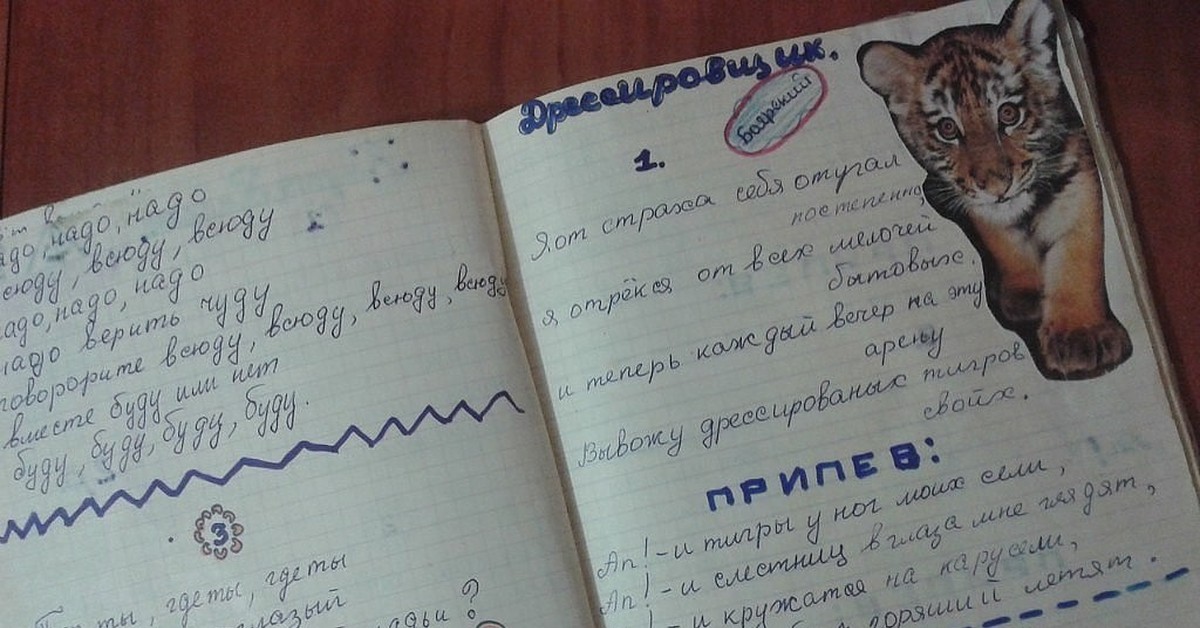 надо, надо
всюду, всюду
надо, надо, надо
надо верить чуду
говорорите всюду, всюду, всюду, всюду
вместе буду или нет
буду, буду, буду, буду.
3
ты, где ты, где ты
?
Дрессировщик.
Боярский
1.
Я, от страха себя отугал
постепенно,
я отрёкся от всех мелочей
бытовых.
и теперь каждый вечер на эту
арену
Вывожу дрессированых тигров
свойх.
ПРИПЕВ:
Ап! - и тигры у ног моих сели,
Ап! - и слестниц в глаза мне глядят,
! - и кружатся на карусели,
горящий летят.